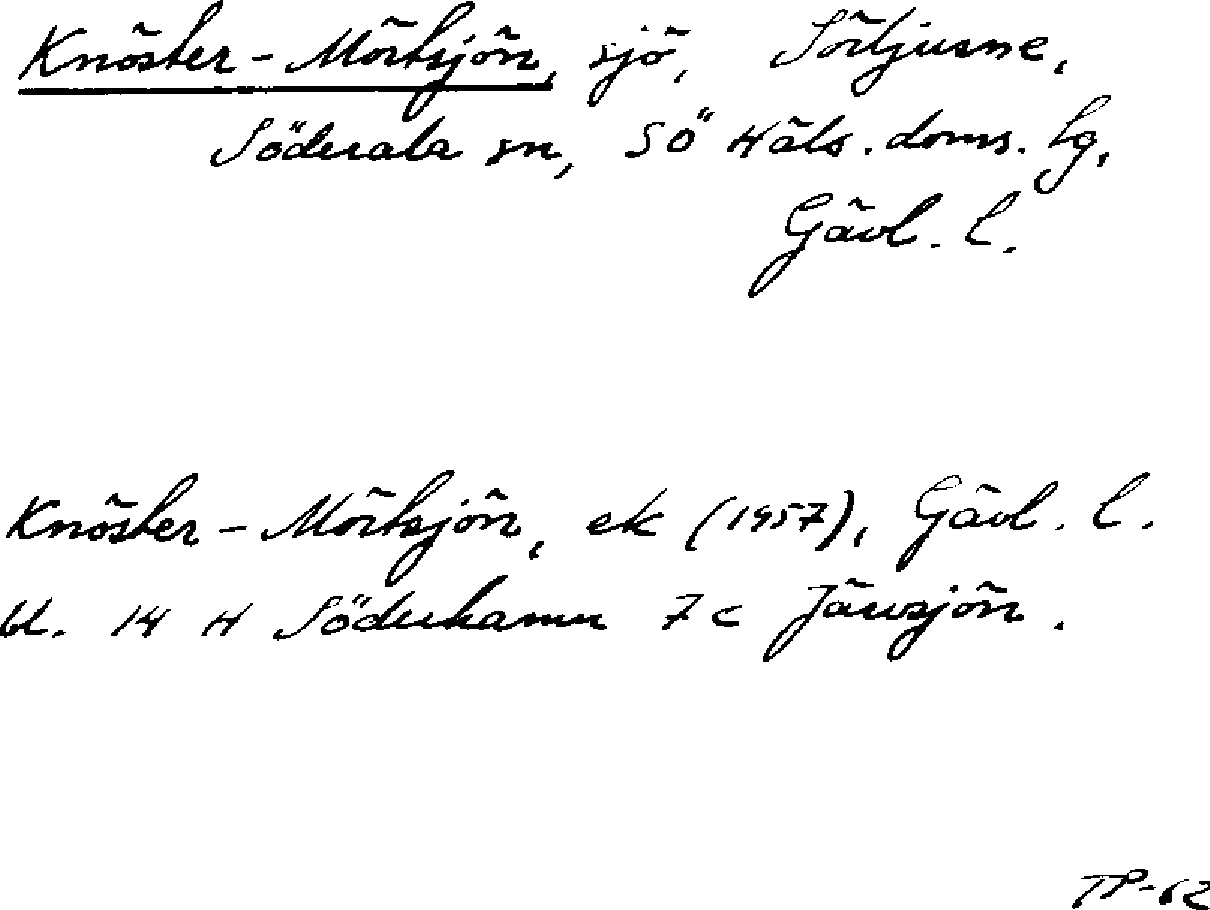 Knöster-Mörtsjön, sjö, Sörljusne,
Söderala sn, SÖ Häls. doms. lg,
Gävl. l.
Knöster-Mörtsjön, ek (1957), Gävl. l.
bl. 14 H Söderhamn 7c Järvsjön.
TP-62